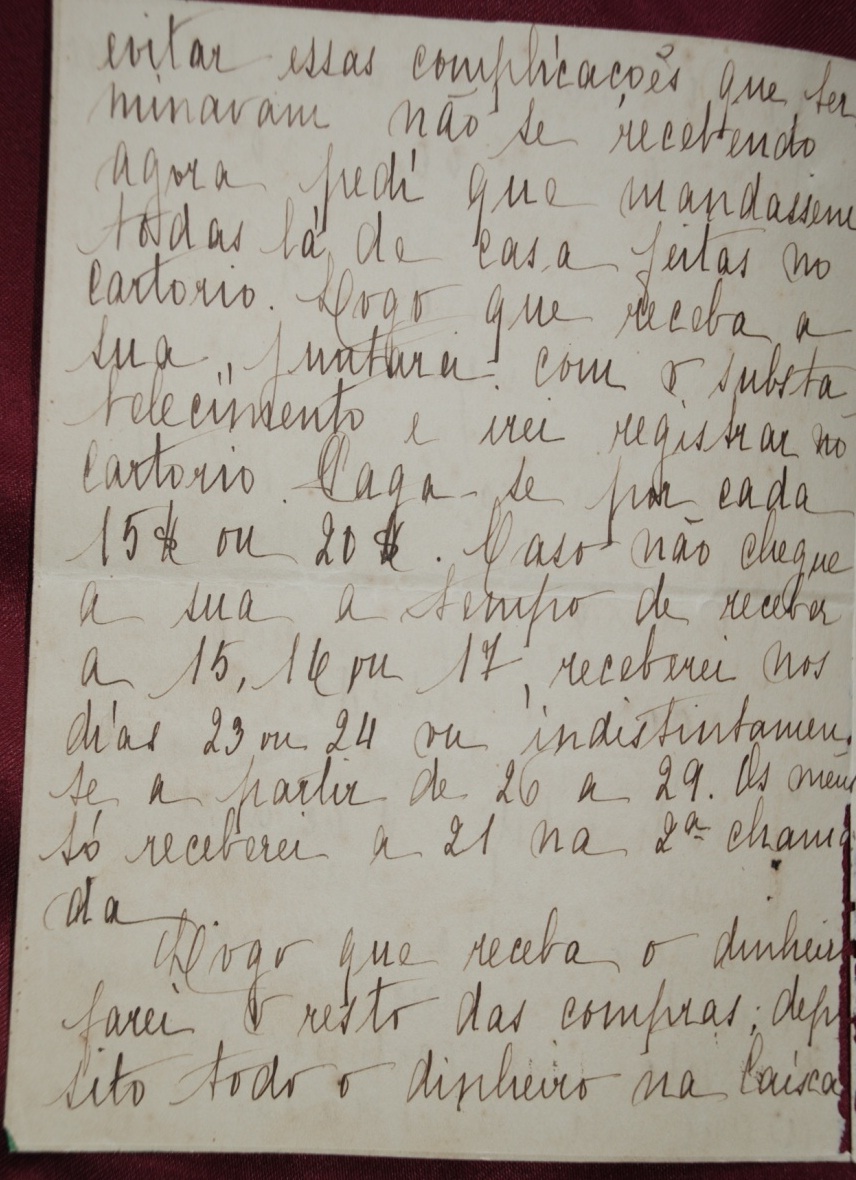 evitar essas complicacoẽs que ter
minavam não se recebendo
agora pedi que mandassem
todas lá de casa feitas no
cartorio. Logo que receba a
sua, juntarei com o substa
belecimento e irei registrar no
cartorio. Paga-se por cada
15$ ou 20$. Caso não chegue
a sua a tempo de receber
a 15, 16 ou 17, receberei nos
dias 23 ou 24 ou indistintamen
te a partir de 26 a 29. Os meus
só receberei a 21 na 2ª chama
da
Logo que receba o dinheiro
farei o resto das compras; depo
sito todo o dinheiro na Caixa